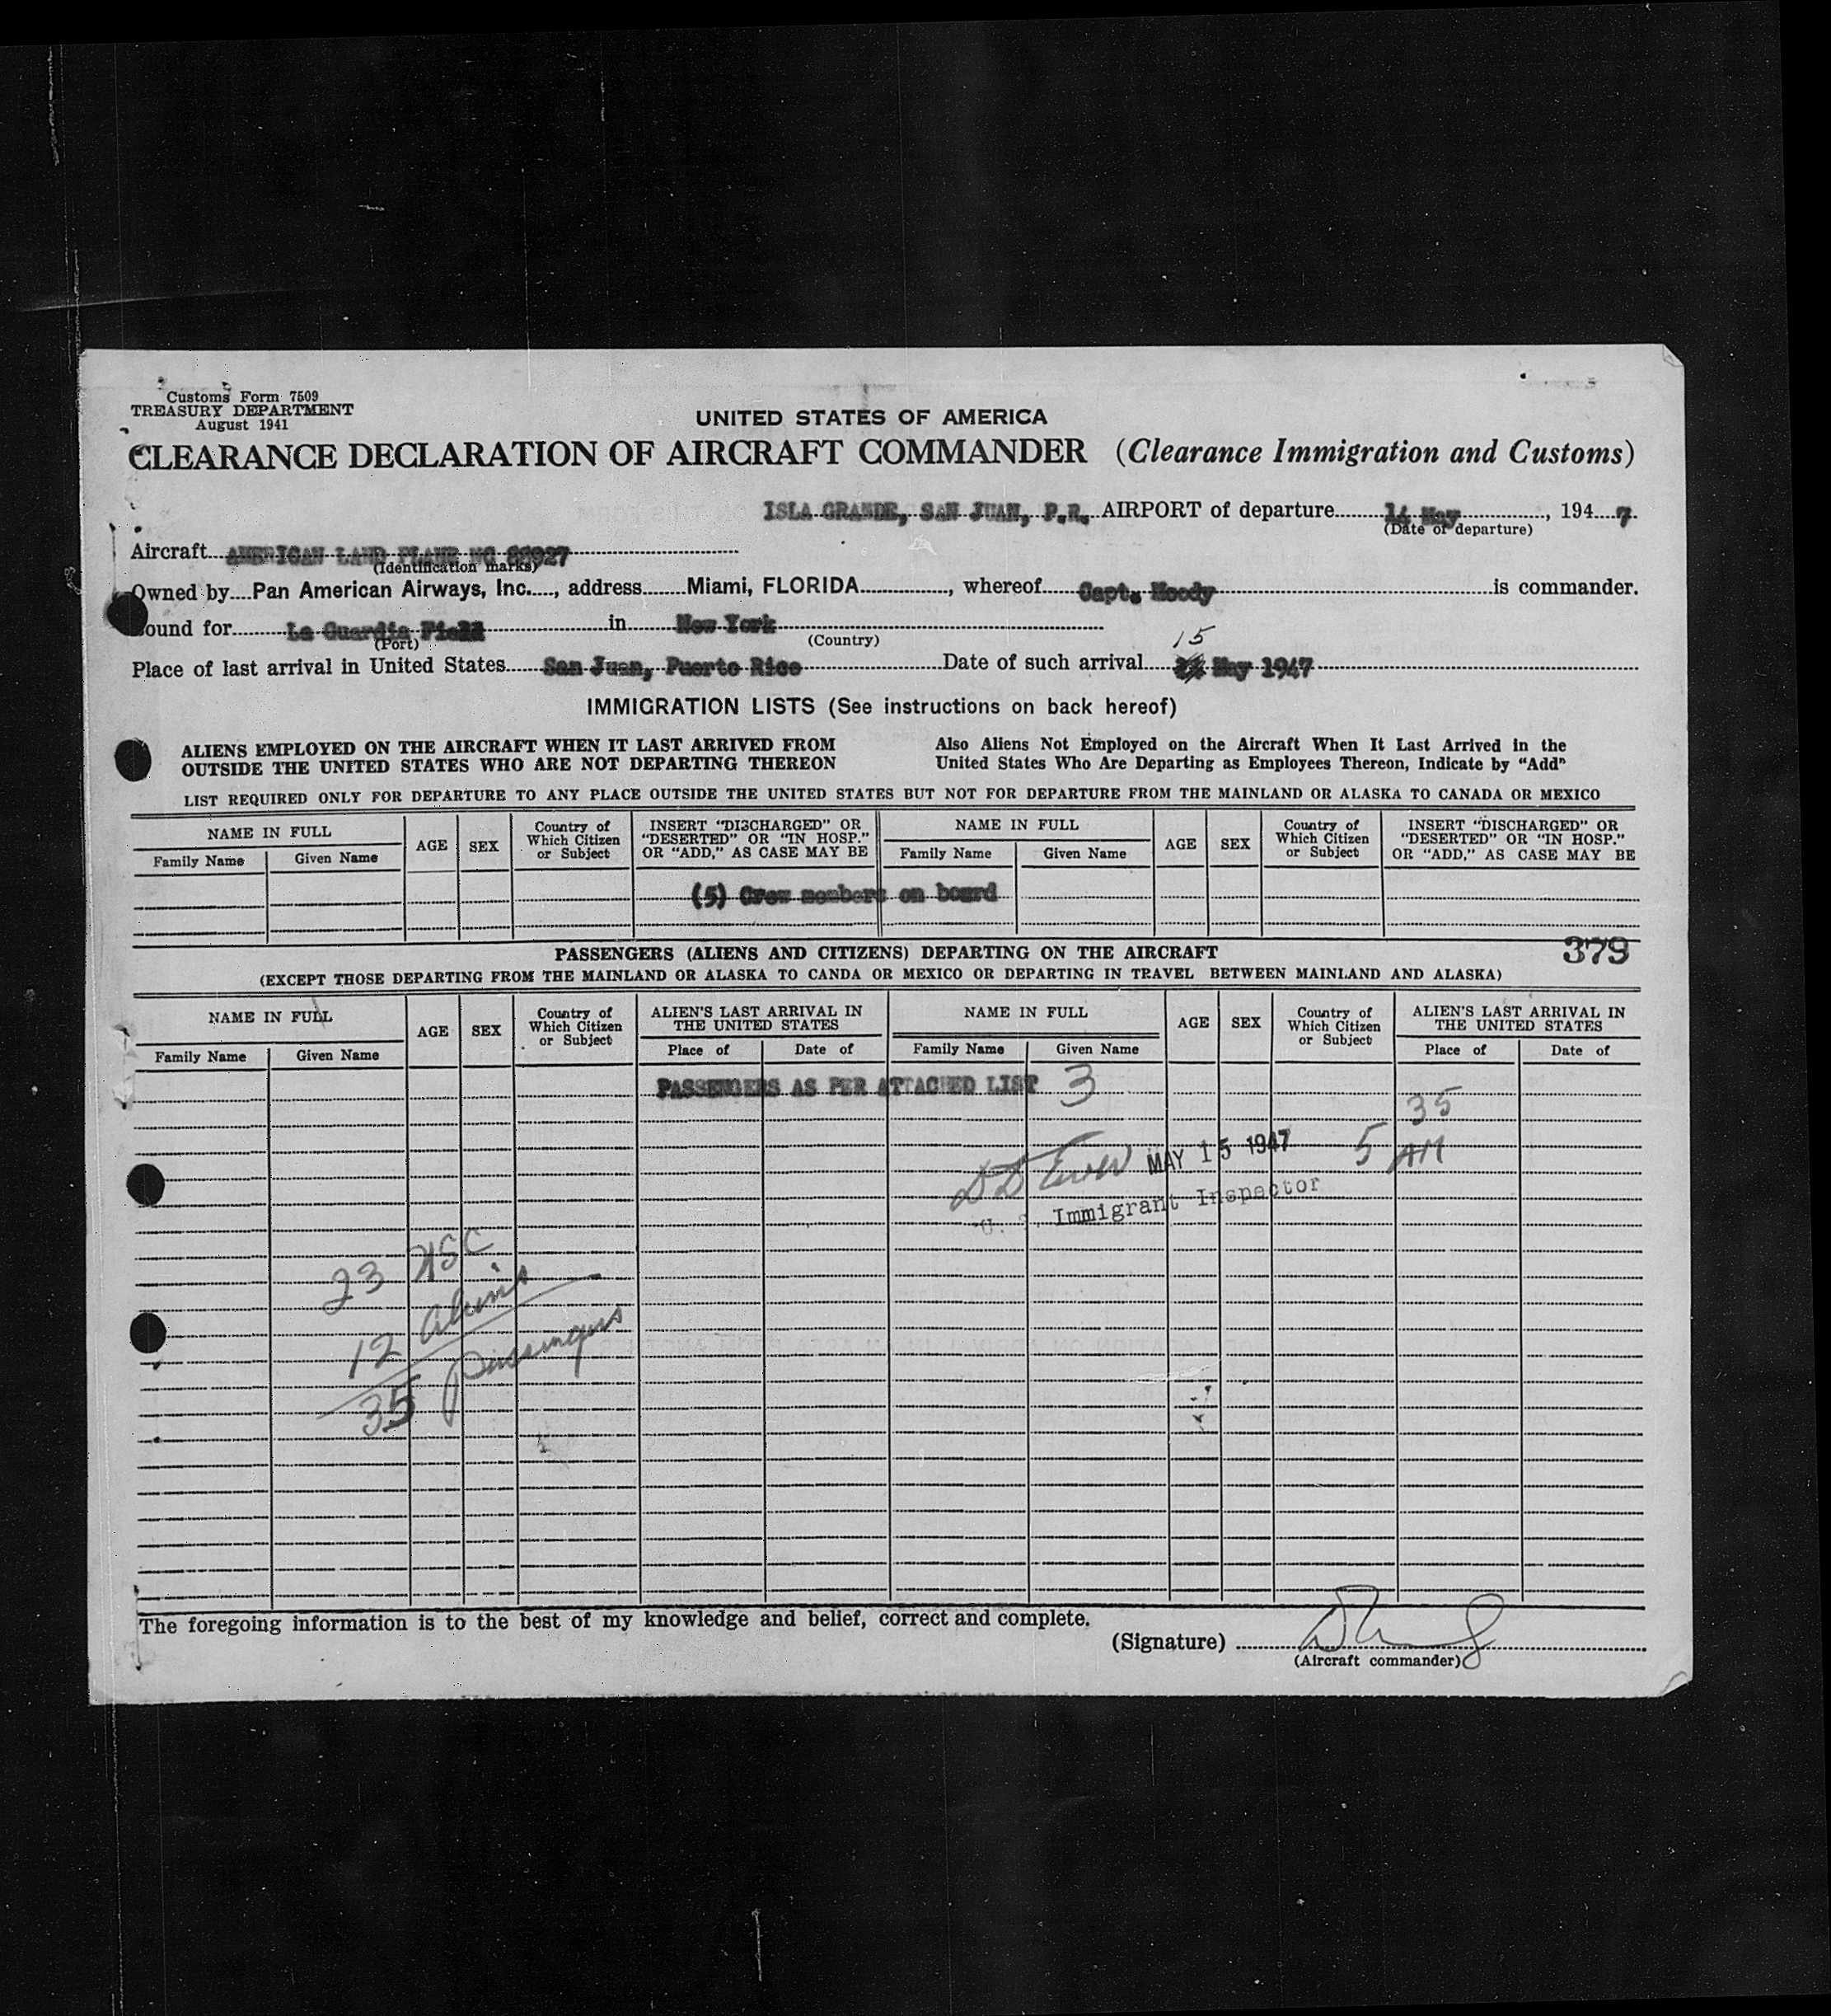 Customs Form 7509
TREASURY DEPARTMENT
August 1941
UNITED STATES OF AMERICA
CLEARANCE DECLARATION OF AIRCRAFT COMMANDER (Clearance Immigration and Customs)
ISLA GRANDE, SAN JUAN, P.R. AIRPORT of departure 14 May, 1947
(Date of departure)
Aircraft AMERICAN LAND PLANE NC
(Identification marks)
Owned by Pan American Airways, Inc., address Miami, FLORIDA, whereof Capt. Moody is commander.
Bound for La Guardia Field in New York
(Port) (Country)
15
Place of last arrival in United States San Juan, Puerto Rico Date of such arrival May 1947
IMMIGRATION LISTS (See instructions on back hereof)
ALIENS EMPLOYED ON THE AIRCRAFT WHEN IT LAST ARRIVED FROM
OUTSIDE THE UNITED STATES WHO ARE NOT DEPARTING THEREON
Also Aliens Not Employed on the Aircraft When It Last Arrived in the
United States Who Are Departing as Employees Thereon, Indicate by "Add"
LIST REQUIRED ONLY FOR DEPARTURE TO ANY PLACE OUTSIDE THE UNITED STATES BUT NOT FOR DEPARTURE FROM THE MAINLAND OR ALASKA TO CANADA OR MEXICO
NAME IN FULL
Family Name Given Name
AGE
SEX
Country of
Which Citizen
or Subject
INSERT "DISCHARGED" OR
"DESERTED" OR "IN HOSP."
OR "ADD," AS CASE MAY BE
NAME IN FULL
Family Name Given Name
AGE
SEX
Country of
Which Citizen
or Subject
INSERT "DISCHARGED" OR
"DESERTED" OR "IN HOSP."
OR "ADD," AS CASE MAY BE
(5) Crew members on board
PASSENGERS (ALIENS AND CITIZENS) DEPARTING ON THE AIRCRAFT
379
(EXCEPT THOSE DEPARTING FROM THE MAINLAND OR ALASKA TO CANDA OR MEXICO OR DEPARTING IN TRAVEL BETWEEN MAINLAND AND ALASKA)
NAME IN FULL
Family Name Given Name
AGE
SEX
Country of
Which Citizen
or Subject
ALIEN'S LAST ARRIVAL IN
THE UNITED STATES
Place of Date of
NAME IN FULL
Family Name Given Name
AGE
SEX
Country of
Which Citizen
or Subject
ALIEN'S LAST ARRIVAL IN
THE UNITED STATES
Place of Date of
PASSENGERS AS PER ATTACHED LIST 3
35
MAY 15 1947 5 AM
U. S. Immigrant Inspector
23 USC
12 aliens
35 passengers
The foregoing information is to the best of my knowledge and belief, correct and complete.
(Signature)
(Aircraft commander)